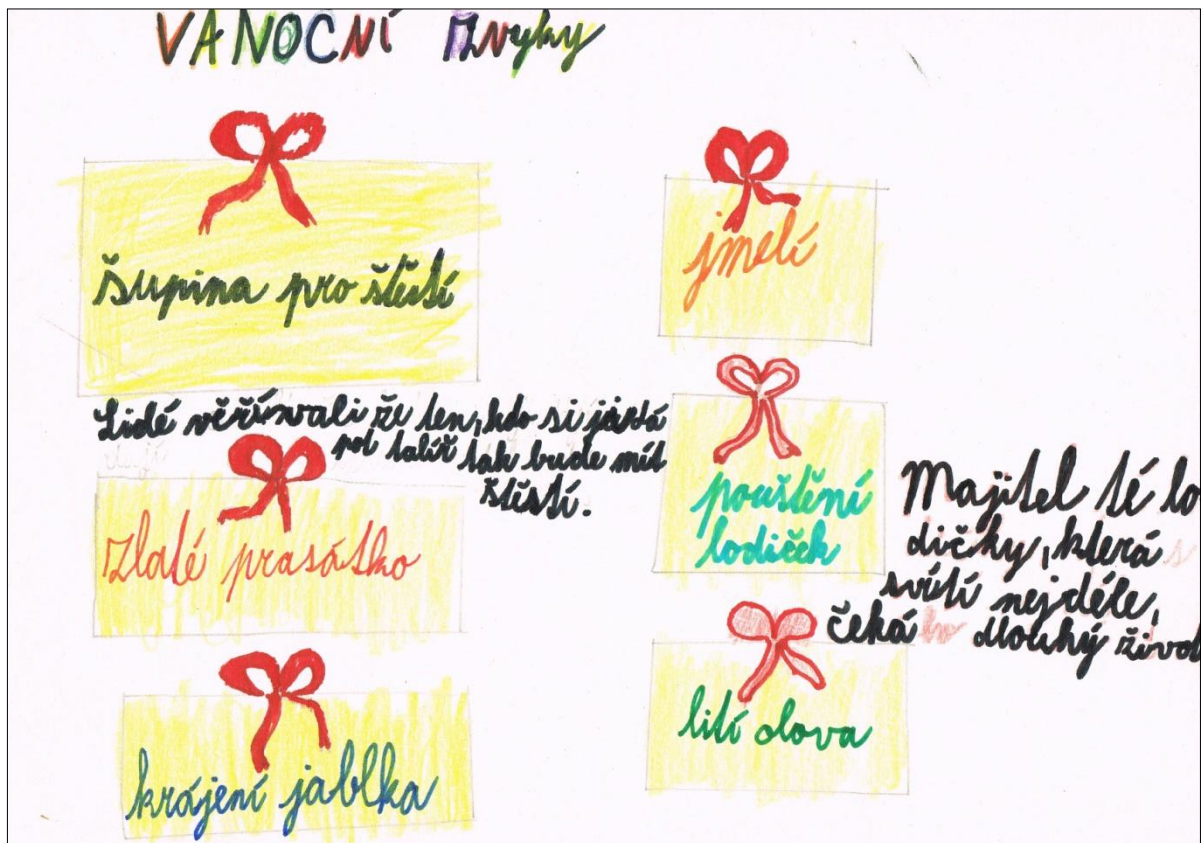 VÁNOČNÍ Zvyky
šupina pro štěstí
Lidé věřívali že ten, kdo si ji dá
pod talíř tak bude mít
štěstí.
Zlaté prasátko
krájení jablka
jmelí
pouštění
lodiček
Majitel té lo
dičky, která
svítí nejdéle,
čeká dlouhý život
lití olova